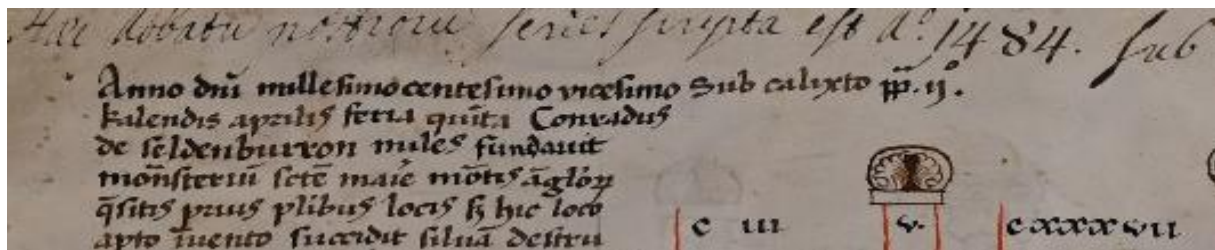 Hæc Abbatū nostrorū series scripta est Aº. 1484. sub
Anno dnı̄ millesimo centesimo vicesimo Sub calixto pp̄. ij°.
kalendis aprilis feria quı̄ta Conradus
de seldenburron miles fundauit
mon̄steriū sctē maīe mōtis āglōꝝ
q̄sitis prius plībus locis sꝫ hic loco
apto īuento succidit siluā destru
c iii v. c xxxx vii